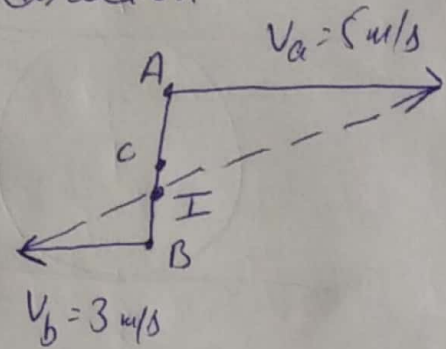 Va = 5 m/s
A
C
I
B
Vb = 3 m/s